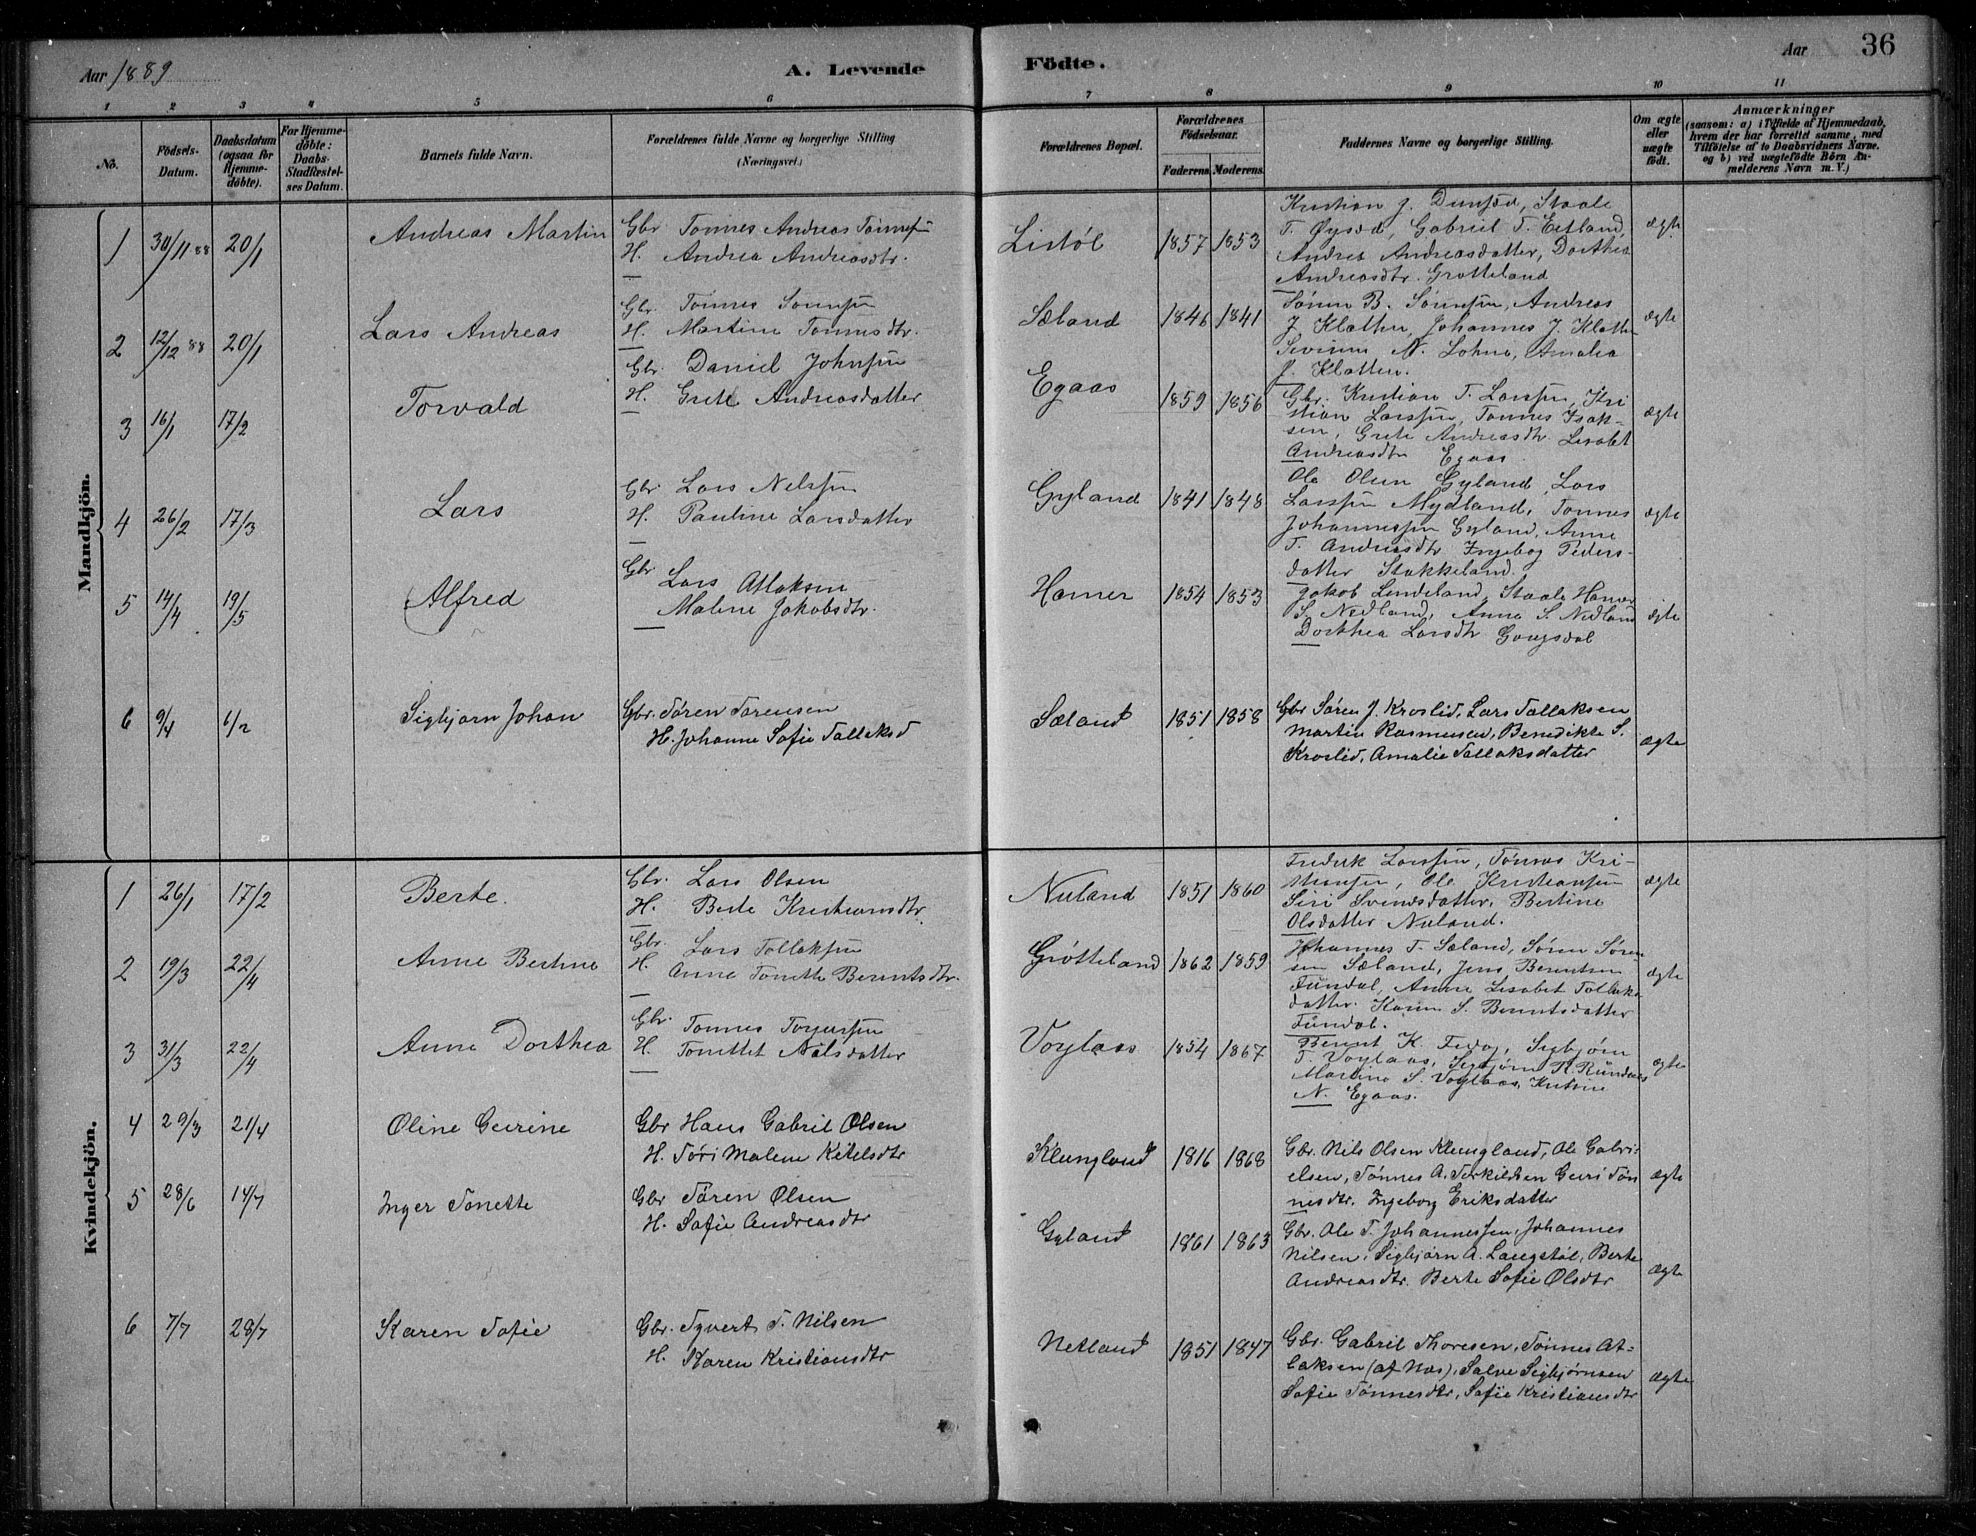 Aar 1889
A. Levende
Födte.
Aar
36
1 2 3 4 5 6 7 8 9 10 11
No.
Födsels-
Datum.
Daabsdatum
(ogsaa for
Hjemme-
döbte).
For Hjemme-
döbte:
Daabs-
Stadfæstel-
ses Datum.
Barnets fulde Navn.
Forældrenes fulde Navne og borgerlige Stilling
(Næringsvei.)
Forældrenes Bopæl.
Forældrenes
Födselsaar.
Faderens Moderens.
Faddernes Navne og borgerlige Stilling.
Om ægte
eller
uægte
födt.
Anmærkninger
(saasom: a) i Tilfælde af Hjemmedaab,
hvem der har forrettet samme, med
Tilföielse af to Daabsvidners Navne.
og b) ved uægtefödte Börn An-
melderens Navn m. V.)
Mandkjön.
1 30/11 88 20/1
Andreas Martin
Gbr Tønnes Andreas
H. Andrea Andreasdtr.
Listøl 1857 1853
Kristian J. Staale
T. Øysæd, Gabriel T. Eitland,
Andrea Andreasdatter, Dorthea
Andreasdtr. Grøtteland
ægte
2 12/12 88 20/1
Lars Andreas
Gbr. Tønnes
H. Martine Tønnesdtr.
Sæland 1846 1841
Søren B. Andreas
J. Klatten, Johannes J. Klatten
N. Lohne, Amalia
J. Klatten.
ægte
3 16/1 17/2
Torvald
Gbr. Daniel Johnsen
H. Grete Andreasdatter
Egaas 1859 1856
Gbr. Kristian T. Larssen, Kri
stian Larssen, Tønnes Isak-
sen, Grete Andreasdtr. Lisabet
Andreasdtr Egaas
ægte
4 26/2 17/3
Lars
Gbr Lars Nelssen
H. Pauline Larsdatter
Gyland 1841 1848
Ole Olsen Gyland, Lars
Larssen Mydland, Tønnes
Johannessen Gyland, Anne
T. Andreasdtr Ingebog Peders-
datter Stakkeland.
ægte
5 14/4 19/5
Alfred
Gbr Lars Atlaksen
Malene Jakobsdtr.
Hamer 1854 1853
Jakob Lindeland, Staale Hamer
S. Nedland, Anne S. Nedland
Dorthea Larsdtr
ægte
6 9/4 6/2
Sigbjørn Johan
Gbr. Søren Sørensen
H. Johanne Sofie Tallaksd
Sæland 1851 1858
Gbr Søren J. Kroslid, Lars Tallaksen
Martin Rasmusen, Benedikte S.
Kroslid, Amalie Tallaksdatter
ægte
Kvindekjön.
1 26/1 17/2
Berte.
Gbr. Lars Olsen
H. Berte Kristiansdtr
Nuland 1851 1860
Fredrik Larssen, Tønnes Kri-
stiansen, Ole Kristiansen
Siri Svendsdatter, Bertine
Olsdatter Nuland.
ægte
2 19/3 22/4
Anne Bertine
Gbr. Lars Tollaksen
H. Anne Tonette Berentsdtr.
Grøtteland 1862 1859
Johannes T. Sæland, Søren Søren-
sen Sæland, Jens Berentsen
Fundal, Anne Lisabet Tollaks
datter. Karen S. Berentsdatter
Fundal.
ægte
3 31/3 22/4
Anne Dorthea
Gbr. Tønnes
H. Nilsdatter
Voglaas 1854 1867
Berent K. Feda, Sigbjørn
T. Voglaas, Sigbjørn R.
Martine S. Voglaas,
N. Egaas.
ægte
4 29/3 21/4
Oline Geirine
Gbr Hans Gabriel Olsen
H. Siri Malene Ketelsdtr
Klungland 1816 1868
Gbr. Nils Olsen Klungland, Ole Gabri-
elsen, Tønnes A. Terkildsen Geiri Tøn
nesdtr. Ingeborg Eriksdatter
ægte
5 28/6 14/7
Inger Tonette
Gbr Søren Olsen
H. Sofie Andreasdtr
Gyland 1861 1863
Gbr. Ole T. Johannessen, Johannes
Nilsen, Sigbjørn A. Langstøl, Berte
Andreasdtr. Berte Sofie Olsdtr
ægte
6 7/7 28/7
Karen Sofie
Gbr. Syvert T. Nilsen
H. Karen Kristiansdtr
Netland 1851 1847
Gbr. Gabriel Thoresen, Tønnes At-
laksen (af Næs), Salve Sigbjørnsen
Sofie Tønnesdtr, Sofie Kristiansdtr
ægte